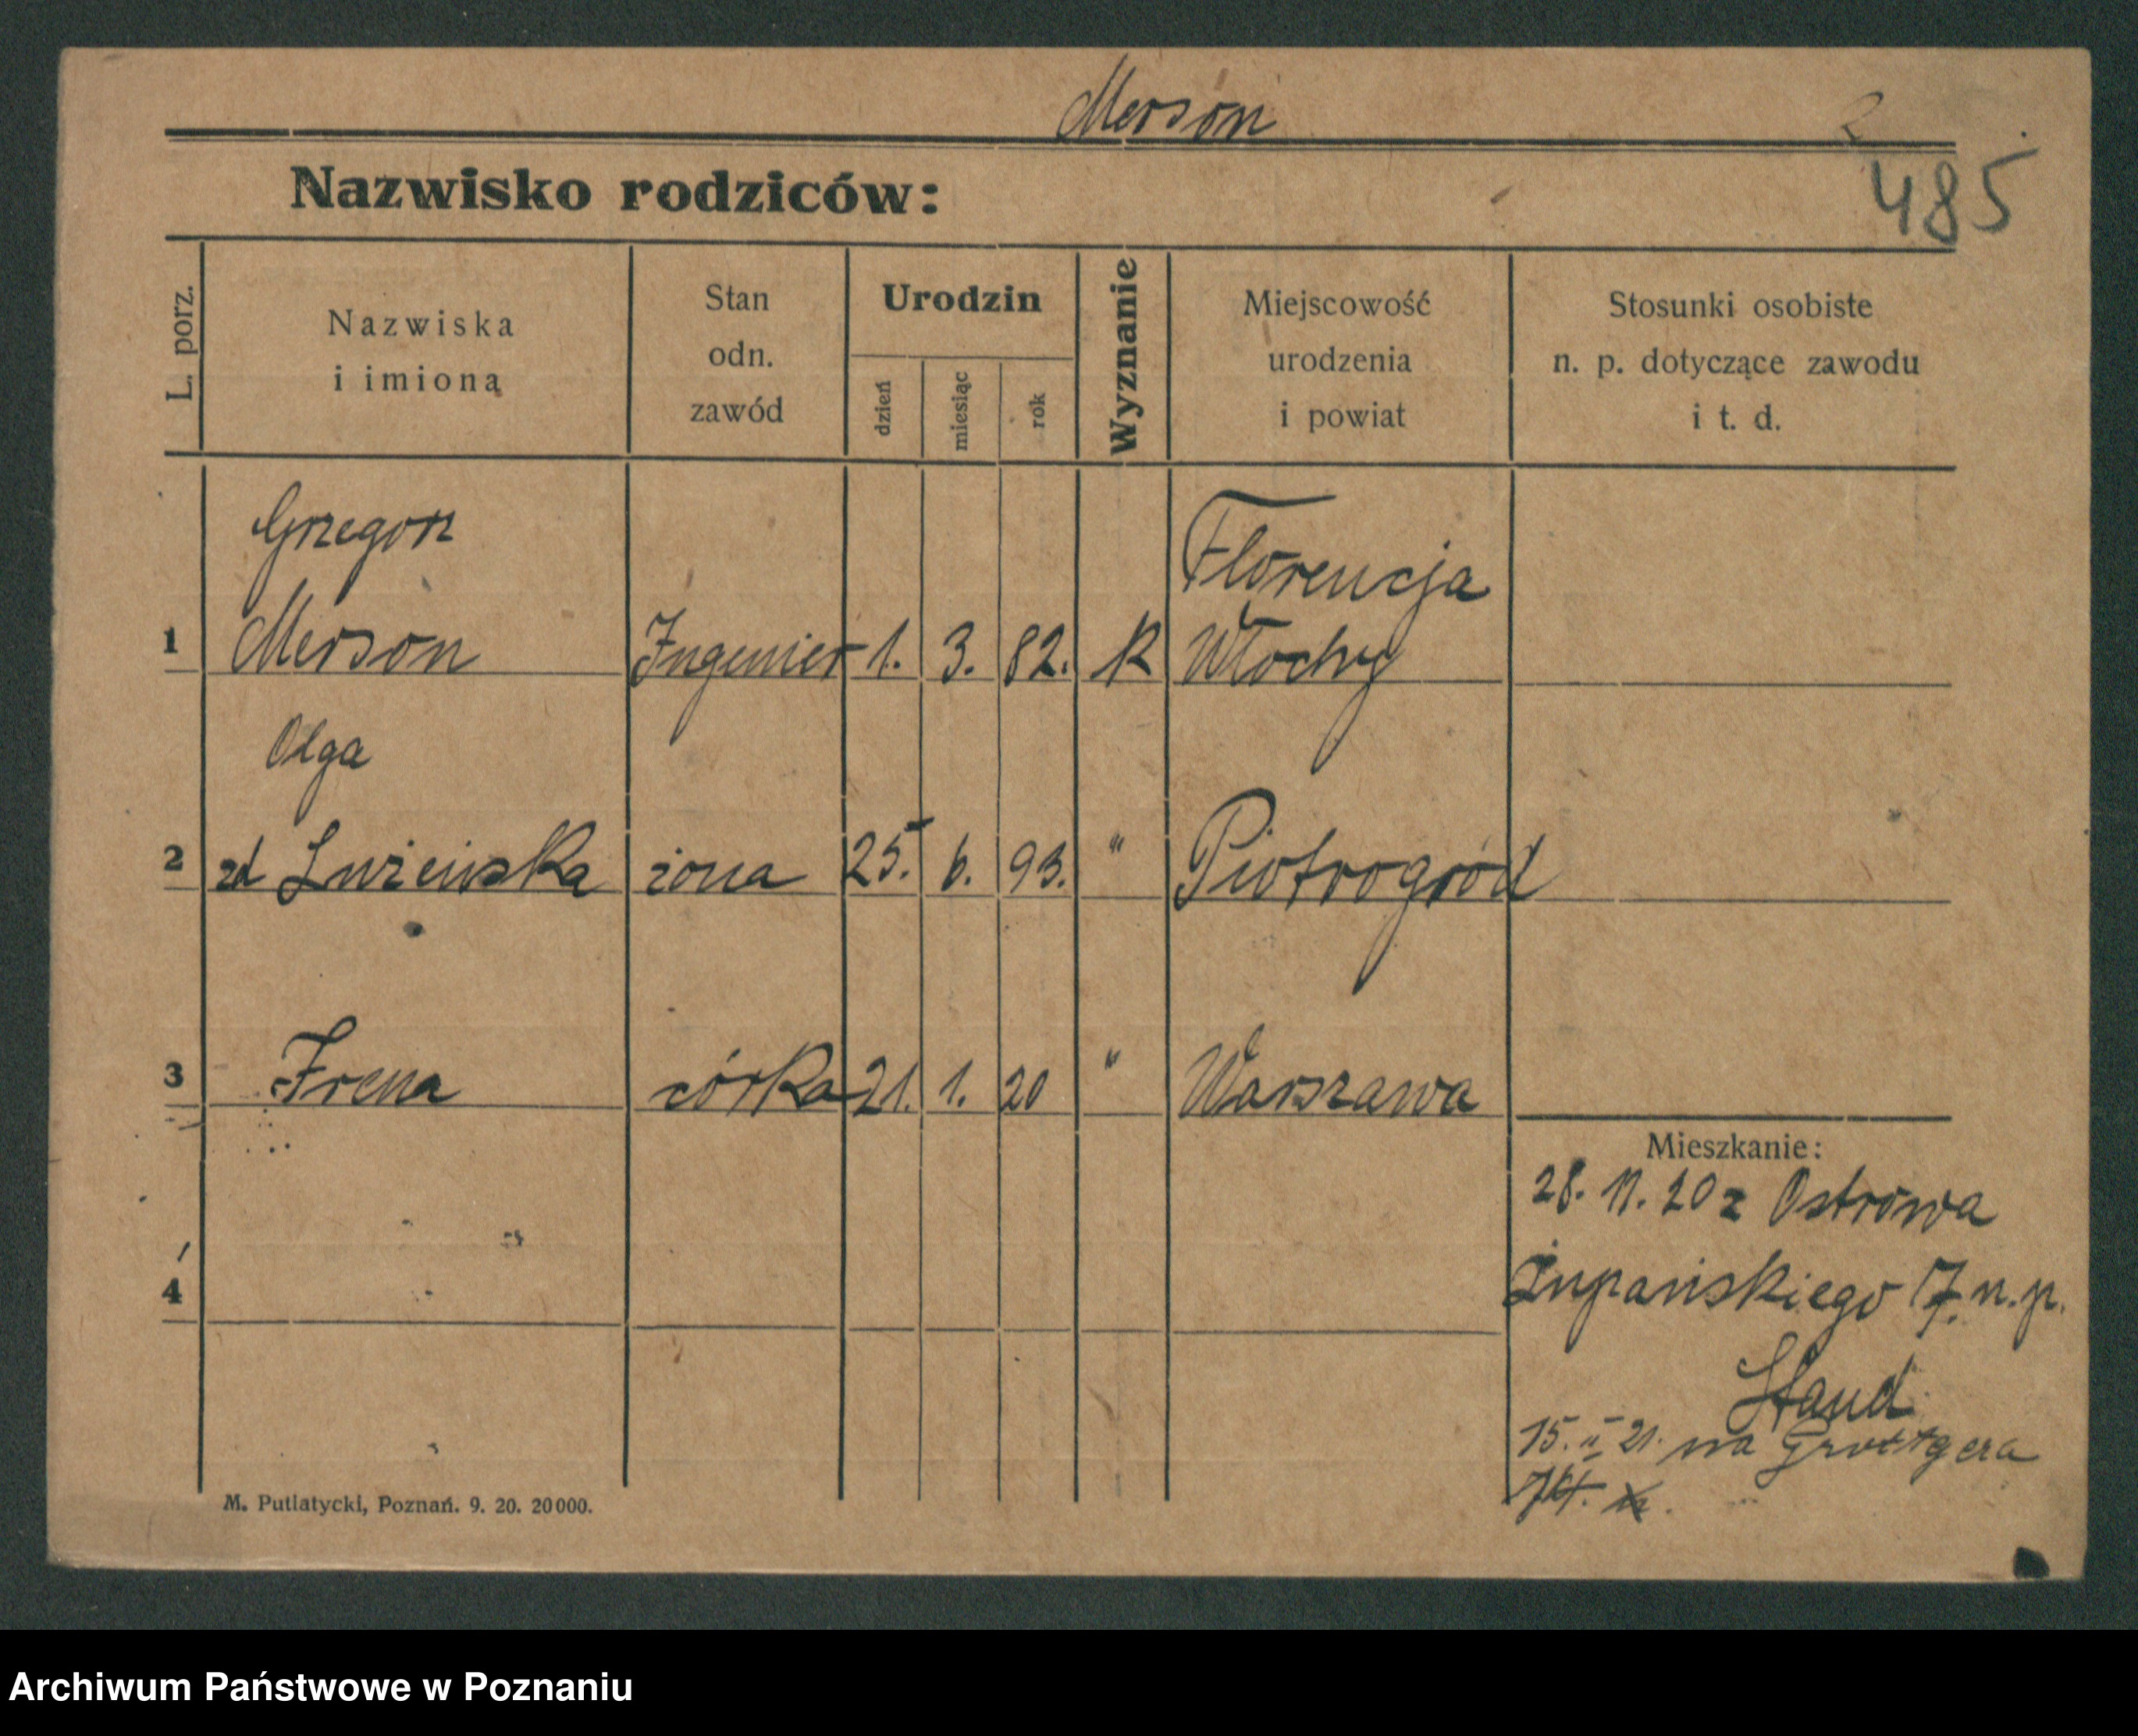 Merson
2
485
Nazwisko rodziców:
L. porz.
Nazwiska
i imioną
Stan
odn.
zawód
Urodzin
dzień
miesiąc
rok
Wyznanie
Miejscowość
urodzenia
i powiat
Stosunki osobiste
n. p. dotyczące zawodu
i t. d.
Grzegorz Florencja
1 Merson Ingenier 1. 3. 82. R Włochy
Olga
2 zd żona 25. 6. 93. " Piotrogród
3 Irena córka 21. 1. 20 " Warszawa
Mieszkanie:
28. 11. 20 z Ostrowa
4 Żupańskiego 17. n. p.
Staud
15. II 21. na Grottgera
M. Putiatycki, Poznań. 9. 20. 20000.
Archiwum Państwowe w Poznaniu